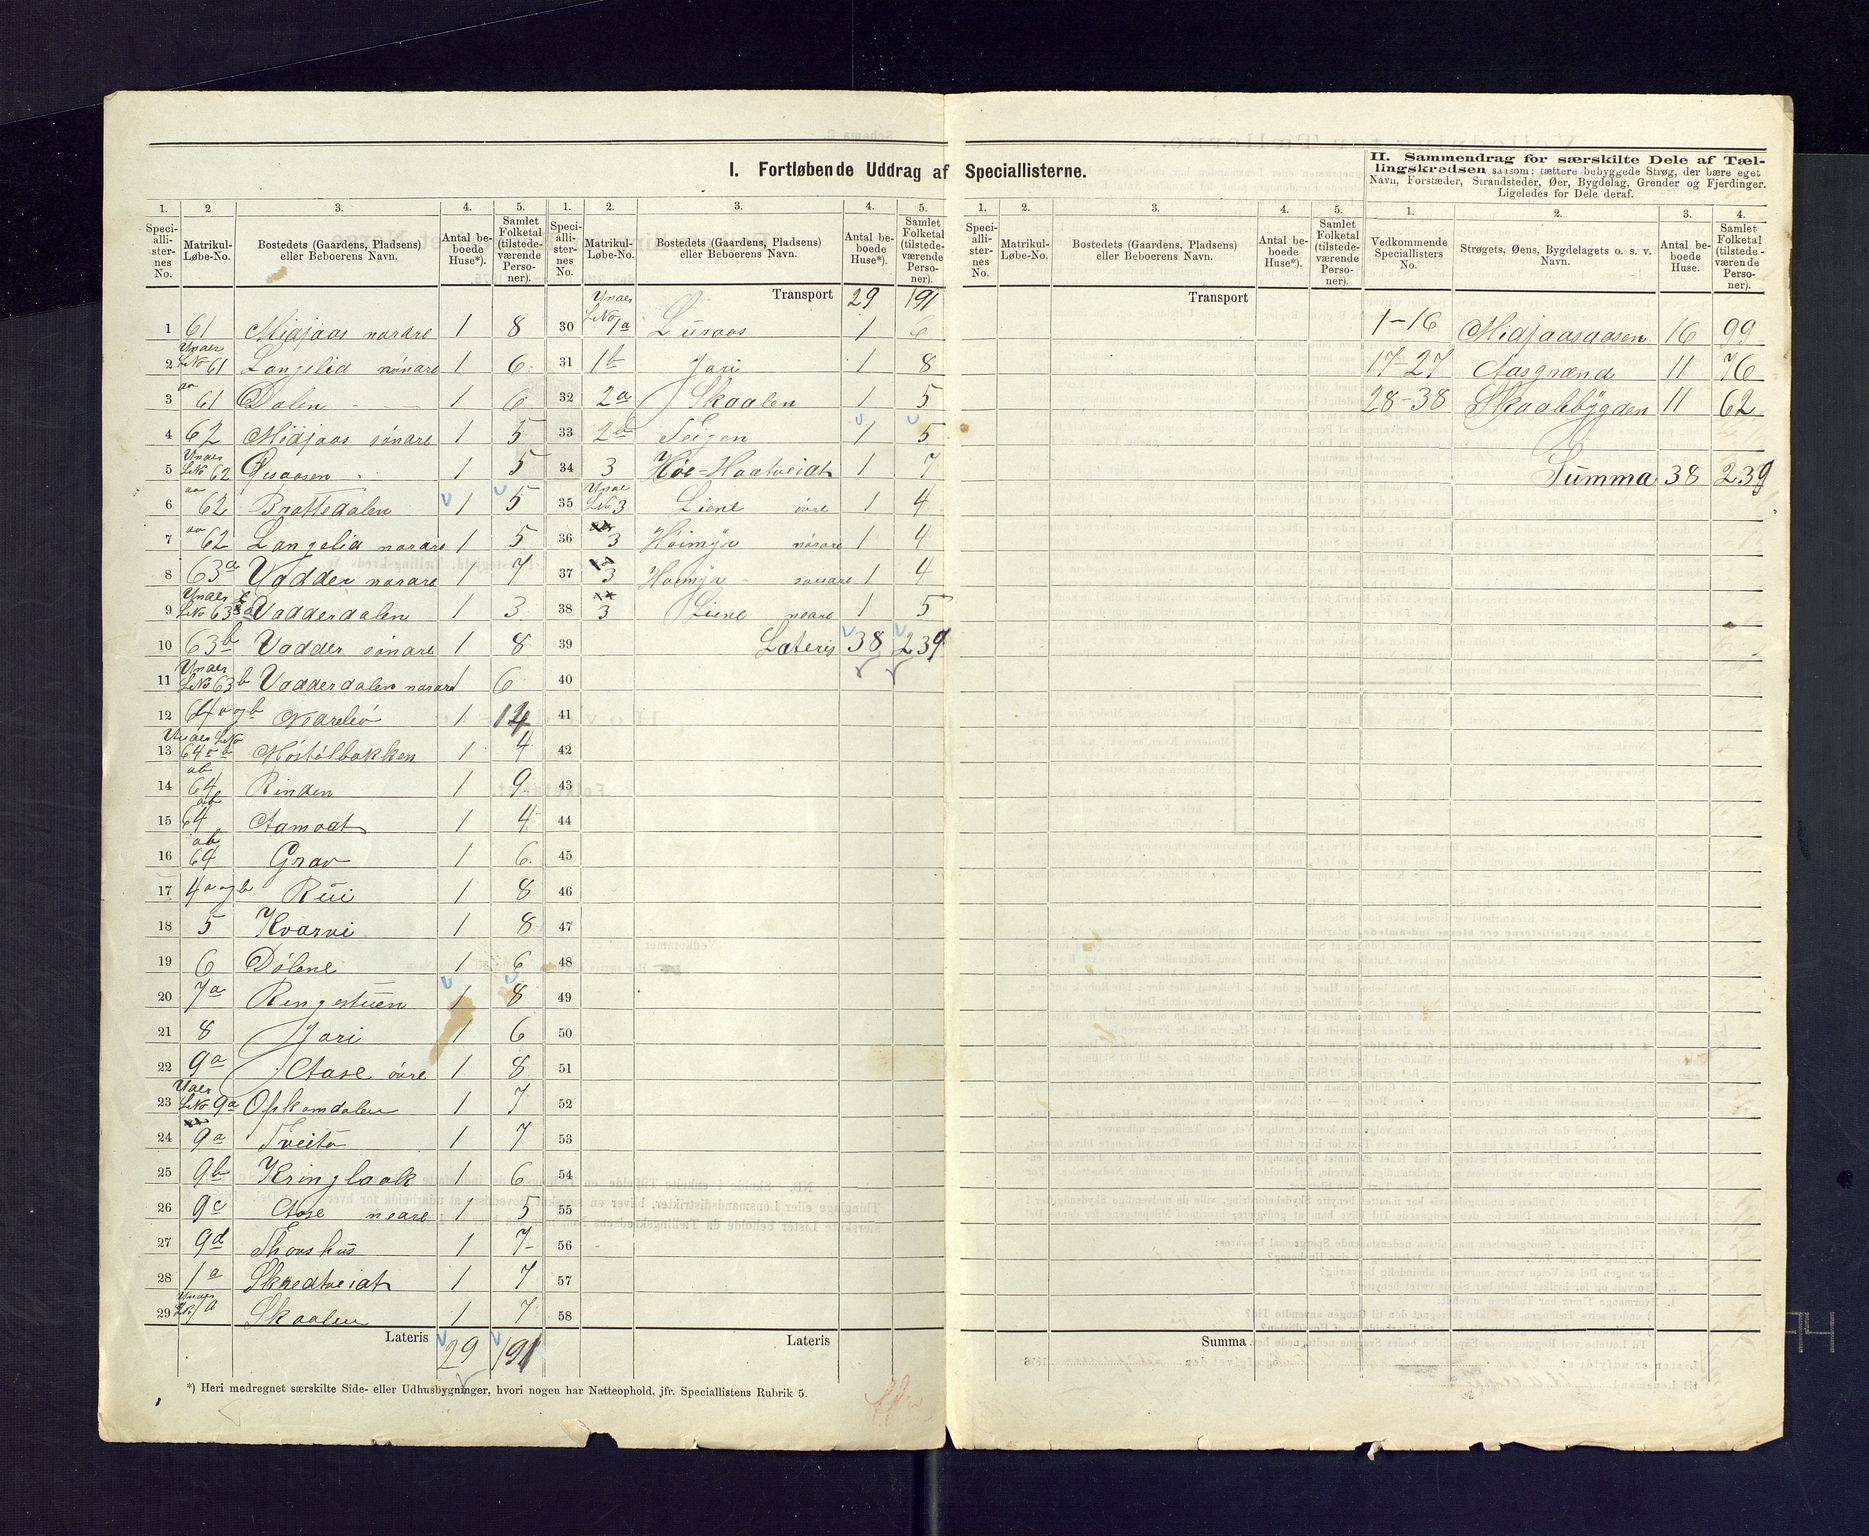 I. Fortløbende Uddrag af Speciallisterne.
II. Sammendrag for særskilte Dele af Tællingskredsen saasom: tættere bebyggede Strøg, der bære eget Navn, Forstæder, Strandsteder, Øer, Bygdelag, Grender og Fjerdinger. Ligeledes for Dele deraf.
1. 2 3. 4. 5. 1. 2. 3. 4. 5. 1. 2. 3. 4. 5. 1. 2. 3. 4.
Speciallisternes No. Matrikul-Løbe-No. Bostedets (Gaardens, Pladsens) eller Beboerens Navn. Antal beboede Huse*). Samlet Folketal (tilstedeværende Personer).
Speciallisternes No. Matrikul-Løbe-No. Bostedets (Gaardens, Pladsens) eller Beboerens Navn. Antal beboede Huse*). Samlet Folketal (tilstedeværende Personer).
Speciallisternes No. Matrikul-Løbe-No. Bostedets (Gaardens, Pladsens) eller Beboerens Navn. Antal beboede Huse*). Samlet Folketal (tilstedeværende Personer).
Vedkommende Speciallisters No. Strøgets, Øens, Bygdelagets o. s. v. Navn. Antal beboede Huse. Samlet Folketal (tilstedeværende Personer).
1 61 Midjaas nordre 1 8
2 Under LNo 61 Langelid nordre 1 6
3 61 Dalen 1 6
4 62 Midjaas søndre 1 5
5 Under LNo 62 1 5
6 62 Brattedalen 1 5
7 62 Langelid nordre 1 5
8 63a Vadder nordre 1 7
9 Under LNo 63a Vadderdalen 1 3
10 63b Vadder søndre 1 8
11 Under LNo 63b Vadderdalen nordre 1 6
12 64a og b 1 14
13 Under LNo 64 a b Mostølbakken 1 4
14 ab 64 Rinden 1 9
15 ab 64 Aamodt 1 4
16 ab 64 Grav 1 6
17 4a og b Rui 1 8
18 5 Kvarvi 1 8
19 6 Dølene 1 6
20 7a Ringestuen 1 8
21 8 Jori 1 6
22 9a Aase øvre 1 8
23 Under LNo 9a Opkomdalen 1 7
24 9a Tveito 1 7
25 9b Kringlaak 1 6
26 9c Aase neare 1 5
27 9d Thorshus 1 7
28 1a Skredtveidt 1 7
29 Under LNo 1a Skaalen 1 7
Lateris 29 191
*) Heri medregnet særskilte Side- eller Udhusbygninger, hvori nogen har Natteophold, jfr. Speciallistens Rubrik 5.
Transport 29 191
30 Under LNo 1a Luraas 1 6
31 1b Jori 1 8
32 2a Skaalen 1 5
33 2b Teigen 1 5
34 3 Høe=Haatveidt 1 7
35 Under LNo 3 Liene øvre 1 4
36 3 Høimyr nordre 1 4
37 3 Høimyr søndre 1 4
38 3 Liene neare 1 5
39 Lateris 38 239
40
41
42
43
44
45
46
47
48
49
50
51
52
53
54
55
56
57
58
Lateris
Transport
Summa
1-16 Midjaasaasen 16 99
17-27 Aasgrænd 11 76
28-38 Skaalebygden 11 62
Summa 38 239